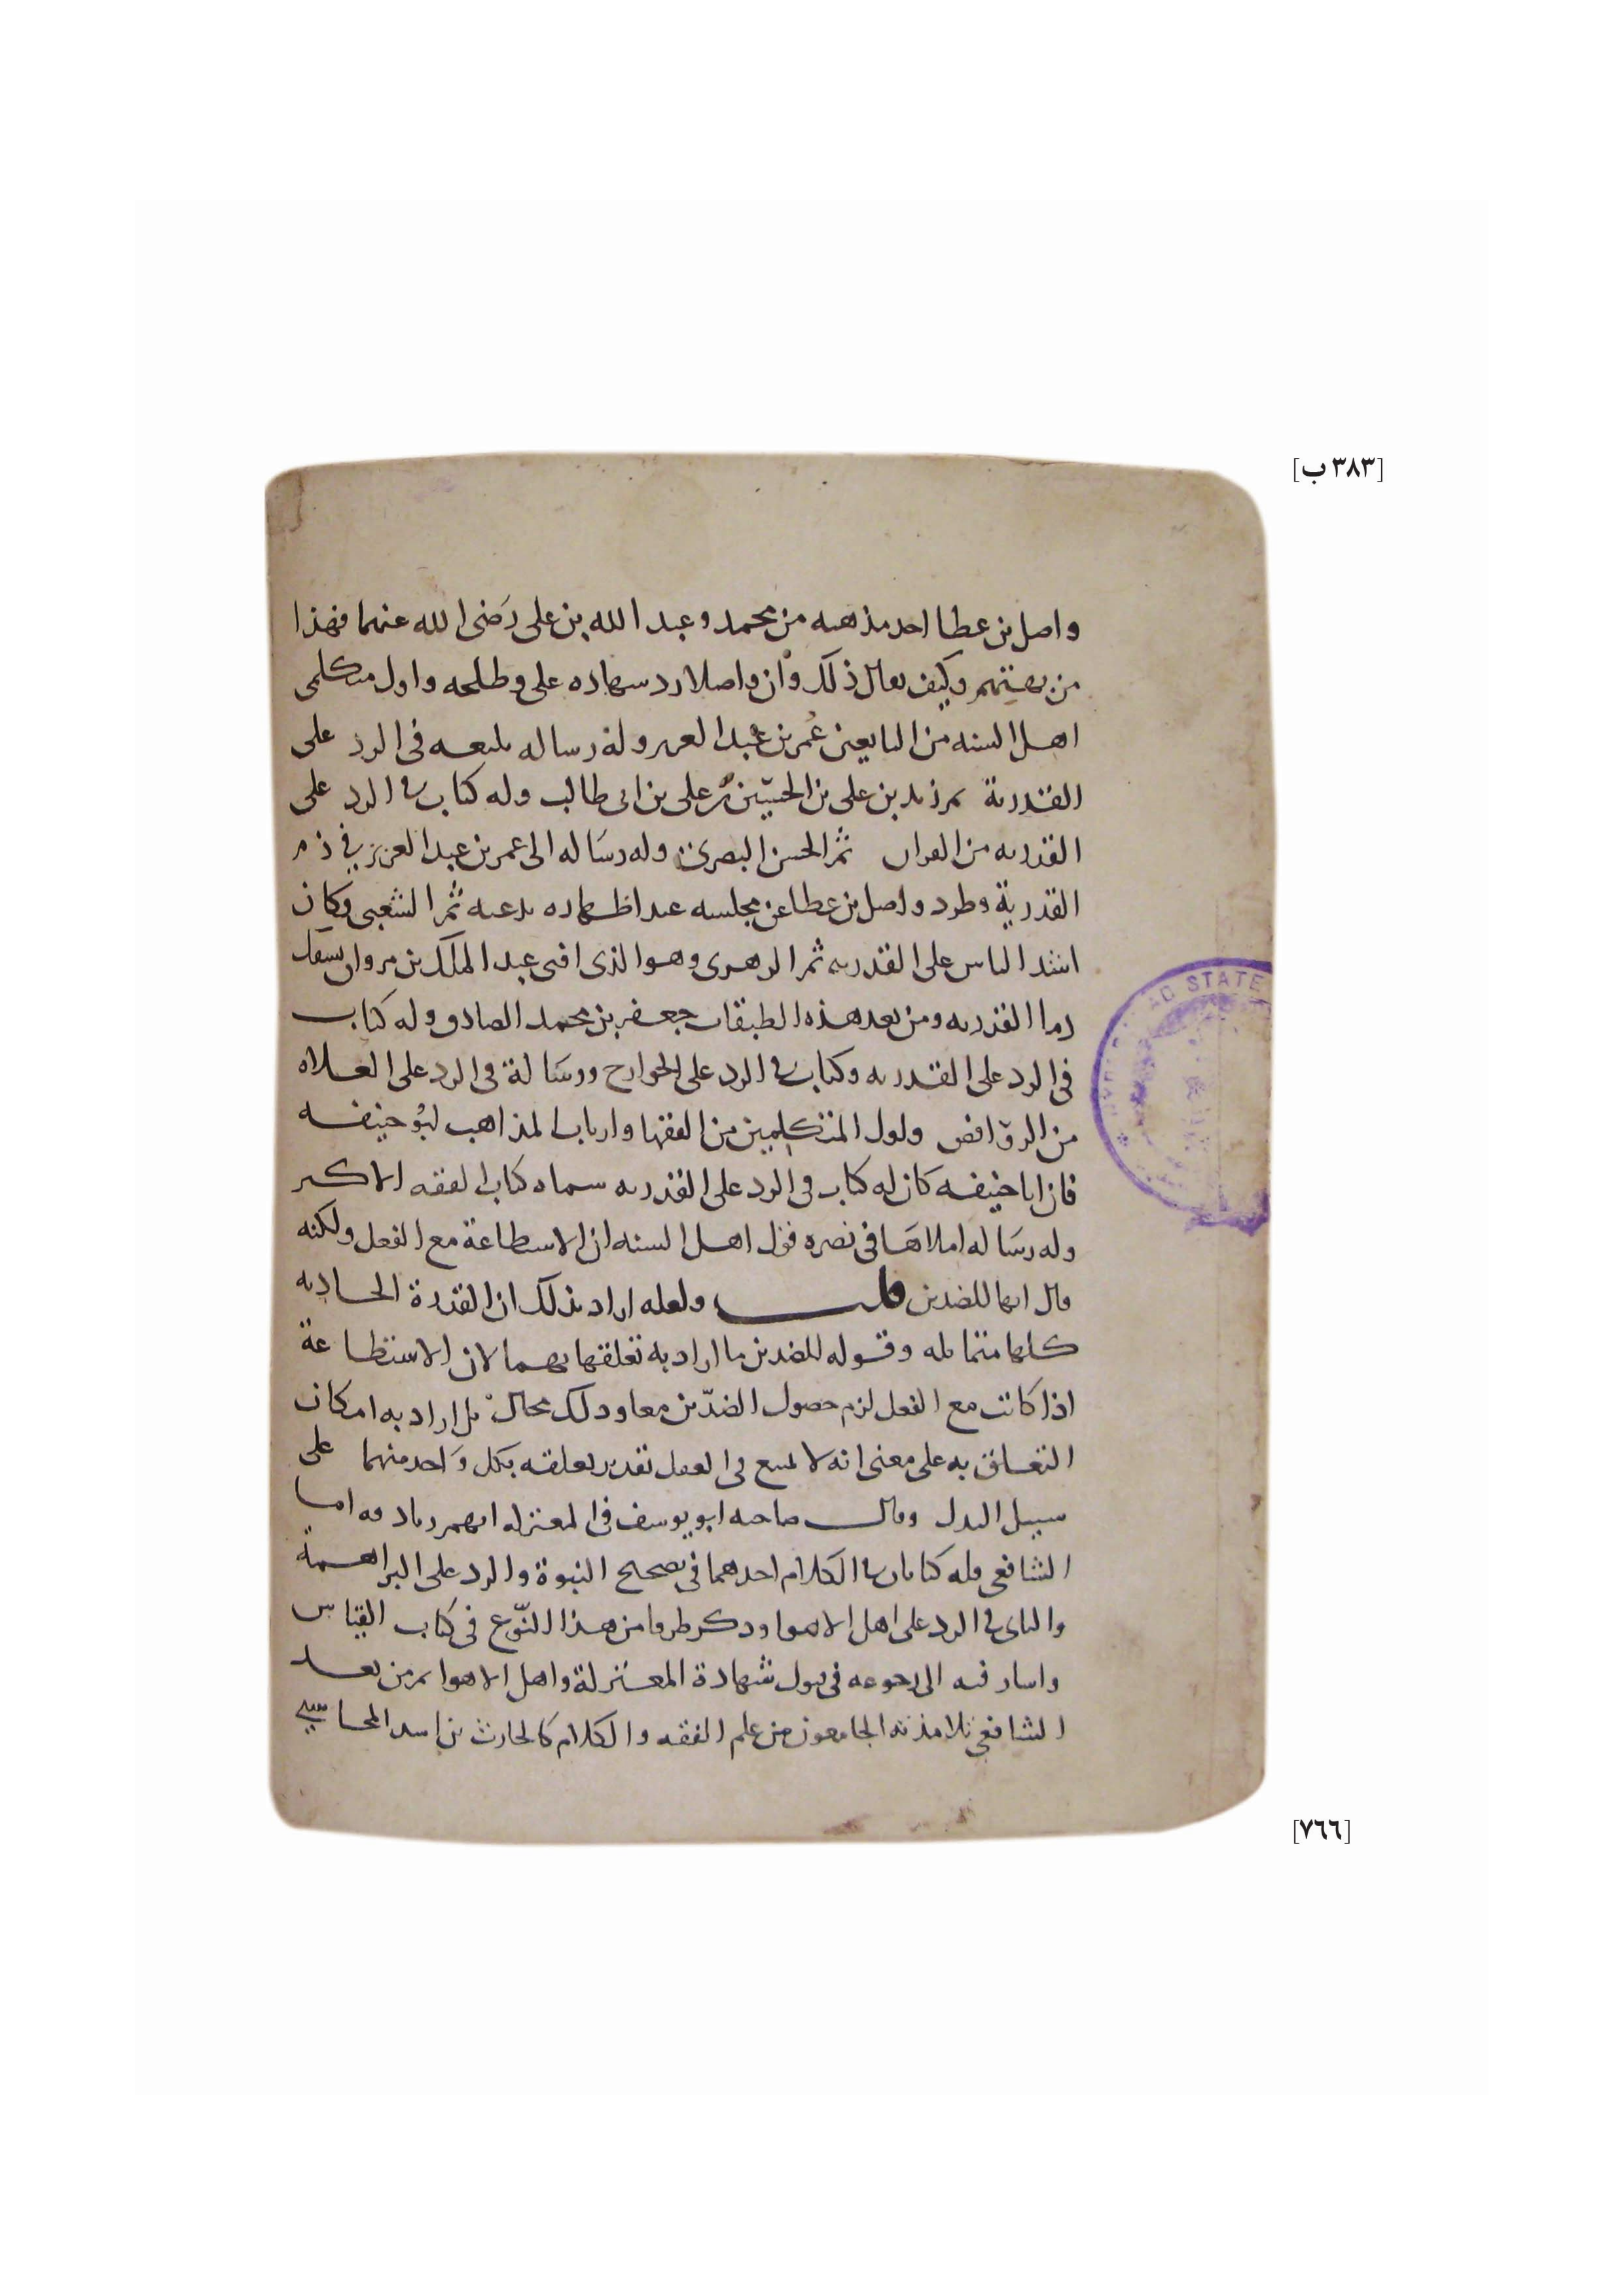 [٣٨٣ ب]
واصل بن عطا اخذ مذهبه من محمد وعبد الله بن على رَضى الله عنهما فهذا
من بهتهم وكيف يقال ذلك وان واصلا رد شهاده على وطلحه واول متكلمى
اهل السنه من التابعين عُمر بن عبد العزيز وله رساله بليغه فى الرد على
القدرية ثم زيد بن على بن الحسين بن على بن ابى طالب وله كتاب فى الرد على
القدريه من القران ثم الحسن البصرى وله رسَاله الى عمر بن عبد العزيز فى ذم
القدرية وطرد واصل بن عطا عن مجلسه عند اظهاره بدعته ثم الشعبى وكان
اشد الناس على القدريه ثم الزهرى وهو الذى افتى عبد الملك بن مروان بسفك
دما القدريه ومن بعد هذه الطبقات جعفر بن محمد الصادق وله كتاب
فى الرد على القدريه وكتاب فى الرد على الخوارج ورسَالة فى الرد على الغلاه
من الروافض واول المتكلمين من الفقها وارباب المذاهب ابو حنيفه
فان ابا حنيفه كان له كتاب فى الرد على القدريه سماه كتاب الفقه الاكبر
وله رسَاله املاهَا فى نصره قول اهل السنه ان الاستطاعة مع الفعل ولكنه
قال انها للضدين قلت ولعله اراد بذلك ان القدرة الحادثه
كلها متماثله وقوله للضدين ما اراد به تعلقها بهما لان الاستطاعة
اذا كانت مع الفعل لزم حصول الضدّين معا وذلك محال بل اراد به امكان
التعلق به على معنى انه لا يمتنع فى العقل تقدير تعلقه بكل وَاحد منهما على
سبيل البدل وقال صاحبه ابو يوسف فى المعتزله انهم زنادقه اما
الشافعى فله كتابان فى الكلام احدهما فى تصحيح النبوة والرد على البراهمة
والثانى فى الرد على اهل الاهوا وذكر طرفا من هذا النّوع فى كتاب القياس
واشار فيه الى رجوعه فى قبول شهادة المعتزلة واهل الاهوا ثم من بعد
الشافعى تلامذته الجامعون بين علم الفقه والكلام كالحارث بن اسد المحاسبى
AD STATE
[٧٦٦]